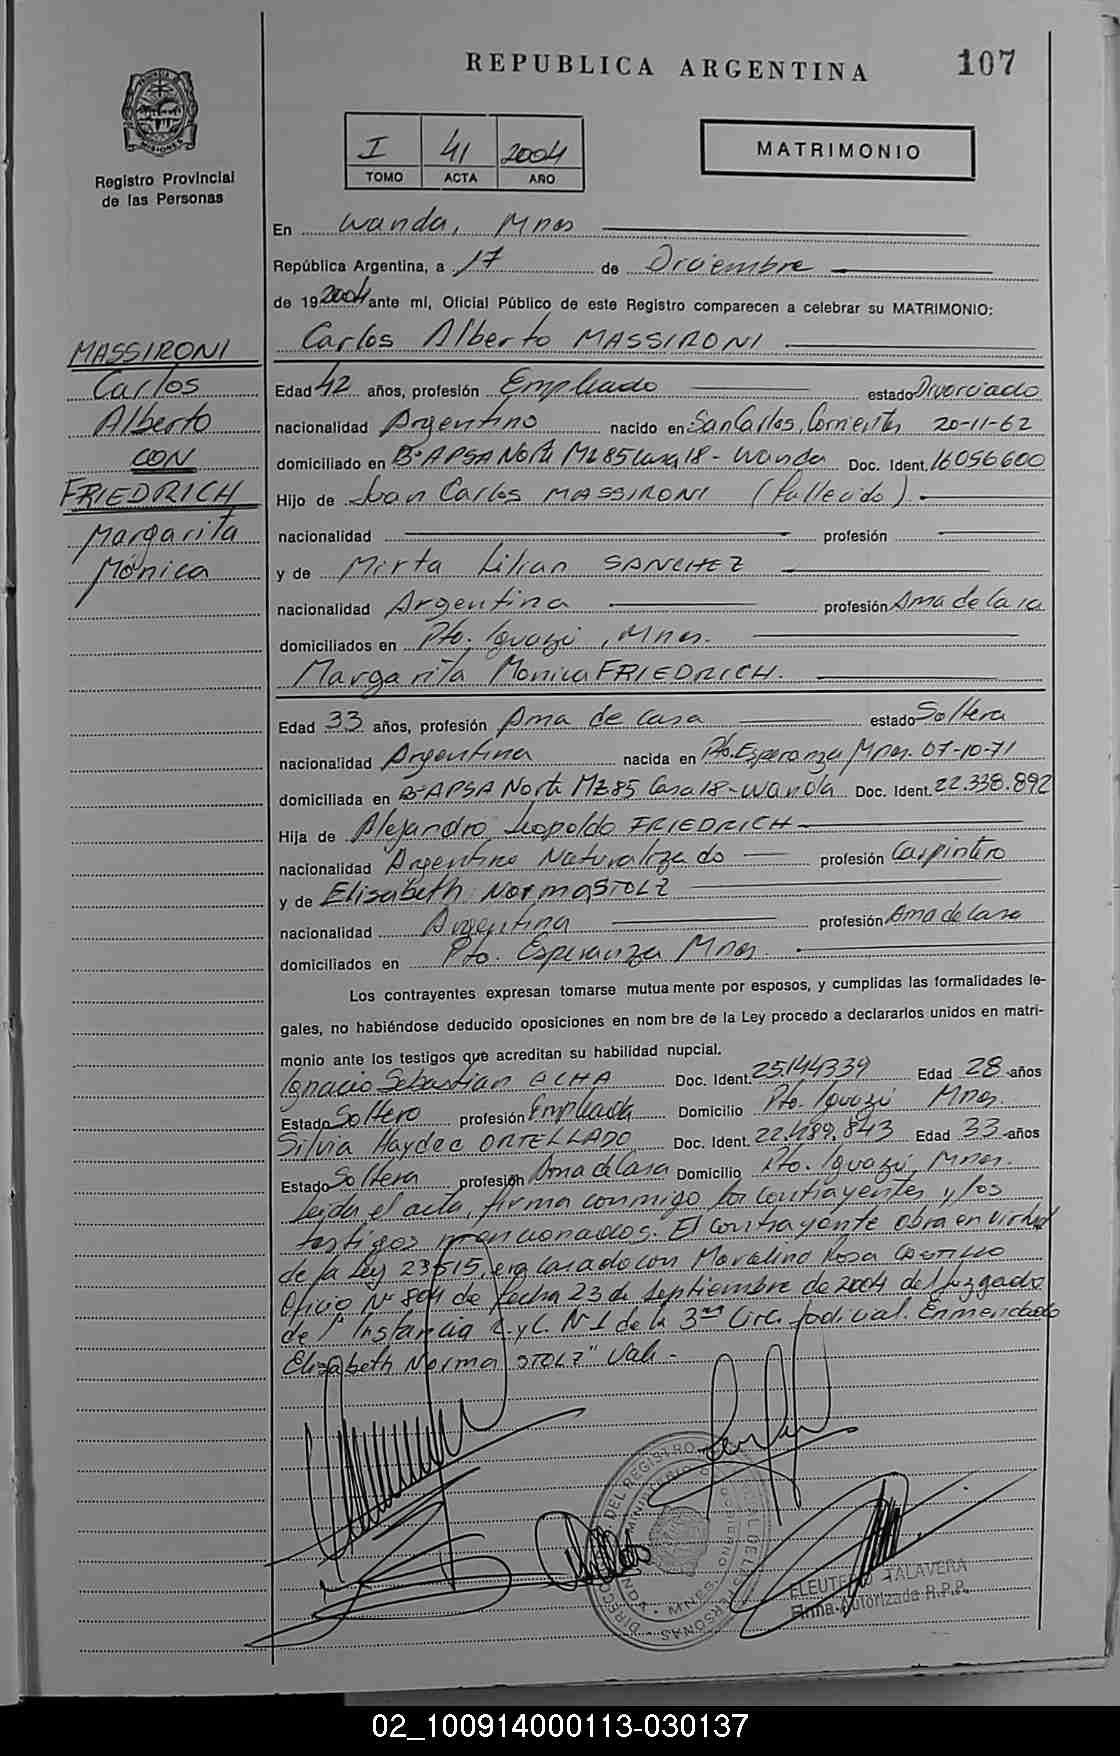 REPUBLICA ARGENTINA
107
PROVINCIA DE MISIONES
Registro Provincial
de las Personas
I 41 2004
TOMO ACTA AÑO
MATRIMONIO
En Wanda, Mnes
República Argentina, a 17 de Diciembre
de 19 2004 ante mí, Oficial Público de este Registro comparecen a celebrar su MATRIMONIO:
Carlos Alberto MASSIRONI
MASSIRONI
Carlos
Alberto
CON
FRIEDRICH
Margarita
Mónica
Edad 42 años, profesión Empleado estado Divorciado
nacionalidad Argentino nacido en San Carlos, Corrientes 20-11-62
domiciliado en Bº APSA Norte Mz 85 Casa 18 - Wanda Doc. Ident. 16056600
Hijo de Juan Carlos MASSIRONI (Fallecido).
nacionalidad profesión
y de Mirta Lilian SANCHEZ
nacionalidad Argentina profesión Ama de Casa
domiciliados en Pto. Iguazú, Mnes.
Margarita Monica FRIEDRICH.
Edad 33 años, profesión Ama de Casa estado Soltera
nacionalidad Argentina nacida en Pto. Esperanza Mnes. 07-10-71
domiciliada en Bº APSA Norte Mz 85 Casa 18 - Wanda Doc. Ident. 22.338.892
Hija de Alejandro Leopoldo FRIEDRICH
nacionalidad Argentino Naturalizado profesión Carpintero
y de Elizabeth Norma STOLZ
nacionalidad Argentina profesión Ama de Casa
domiciliados en Pto. Esperanza Mnes.
Los contrayentes expresan tomarse mutua mente por esposos, y cumplidas las formalidades le-
gales, no habiéndose deducido oposiciones en nom bre de la Ley procedo a declararlos unidos en matri-
monio ante los testigos que acreditan su habilidad nupcial.
Ignacio Sebastian ACHA Doc. Ident. 25.144339 Edad 28 años
Estado Soltero profesión Empleado Domicilio Pto. Iguazú Mnes.
Silvia Haydee ORTELLADO Doc. Ident. 22.489.843 Edad 33 años
Estado Soltera profesión Ama de Casa Domicilio Pto. Iguazú, Mnes.
Leida el acta, firma conmigo los contrayentes y los
testigos mencionados. El contrayente obra en virtud
de la Ley 23515, era casado con Marcelino Rosa
Oficio Nº 804 de fecha 23 de Septiembre de 2004 del Juzgado
de 1ª Instancia C. y C. Nº 1 de la 3ra Circ. Judicial. Enmendado
"Elizabeth Norma STOLZ" Vale.-
ELEUTERIO TALAVERA
Firma Autorizada R.P.P.
02_100914000113-030137